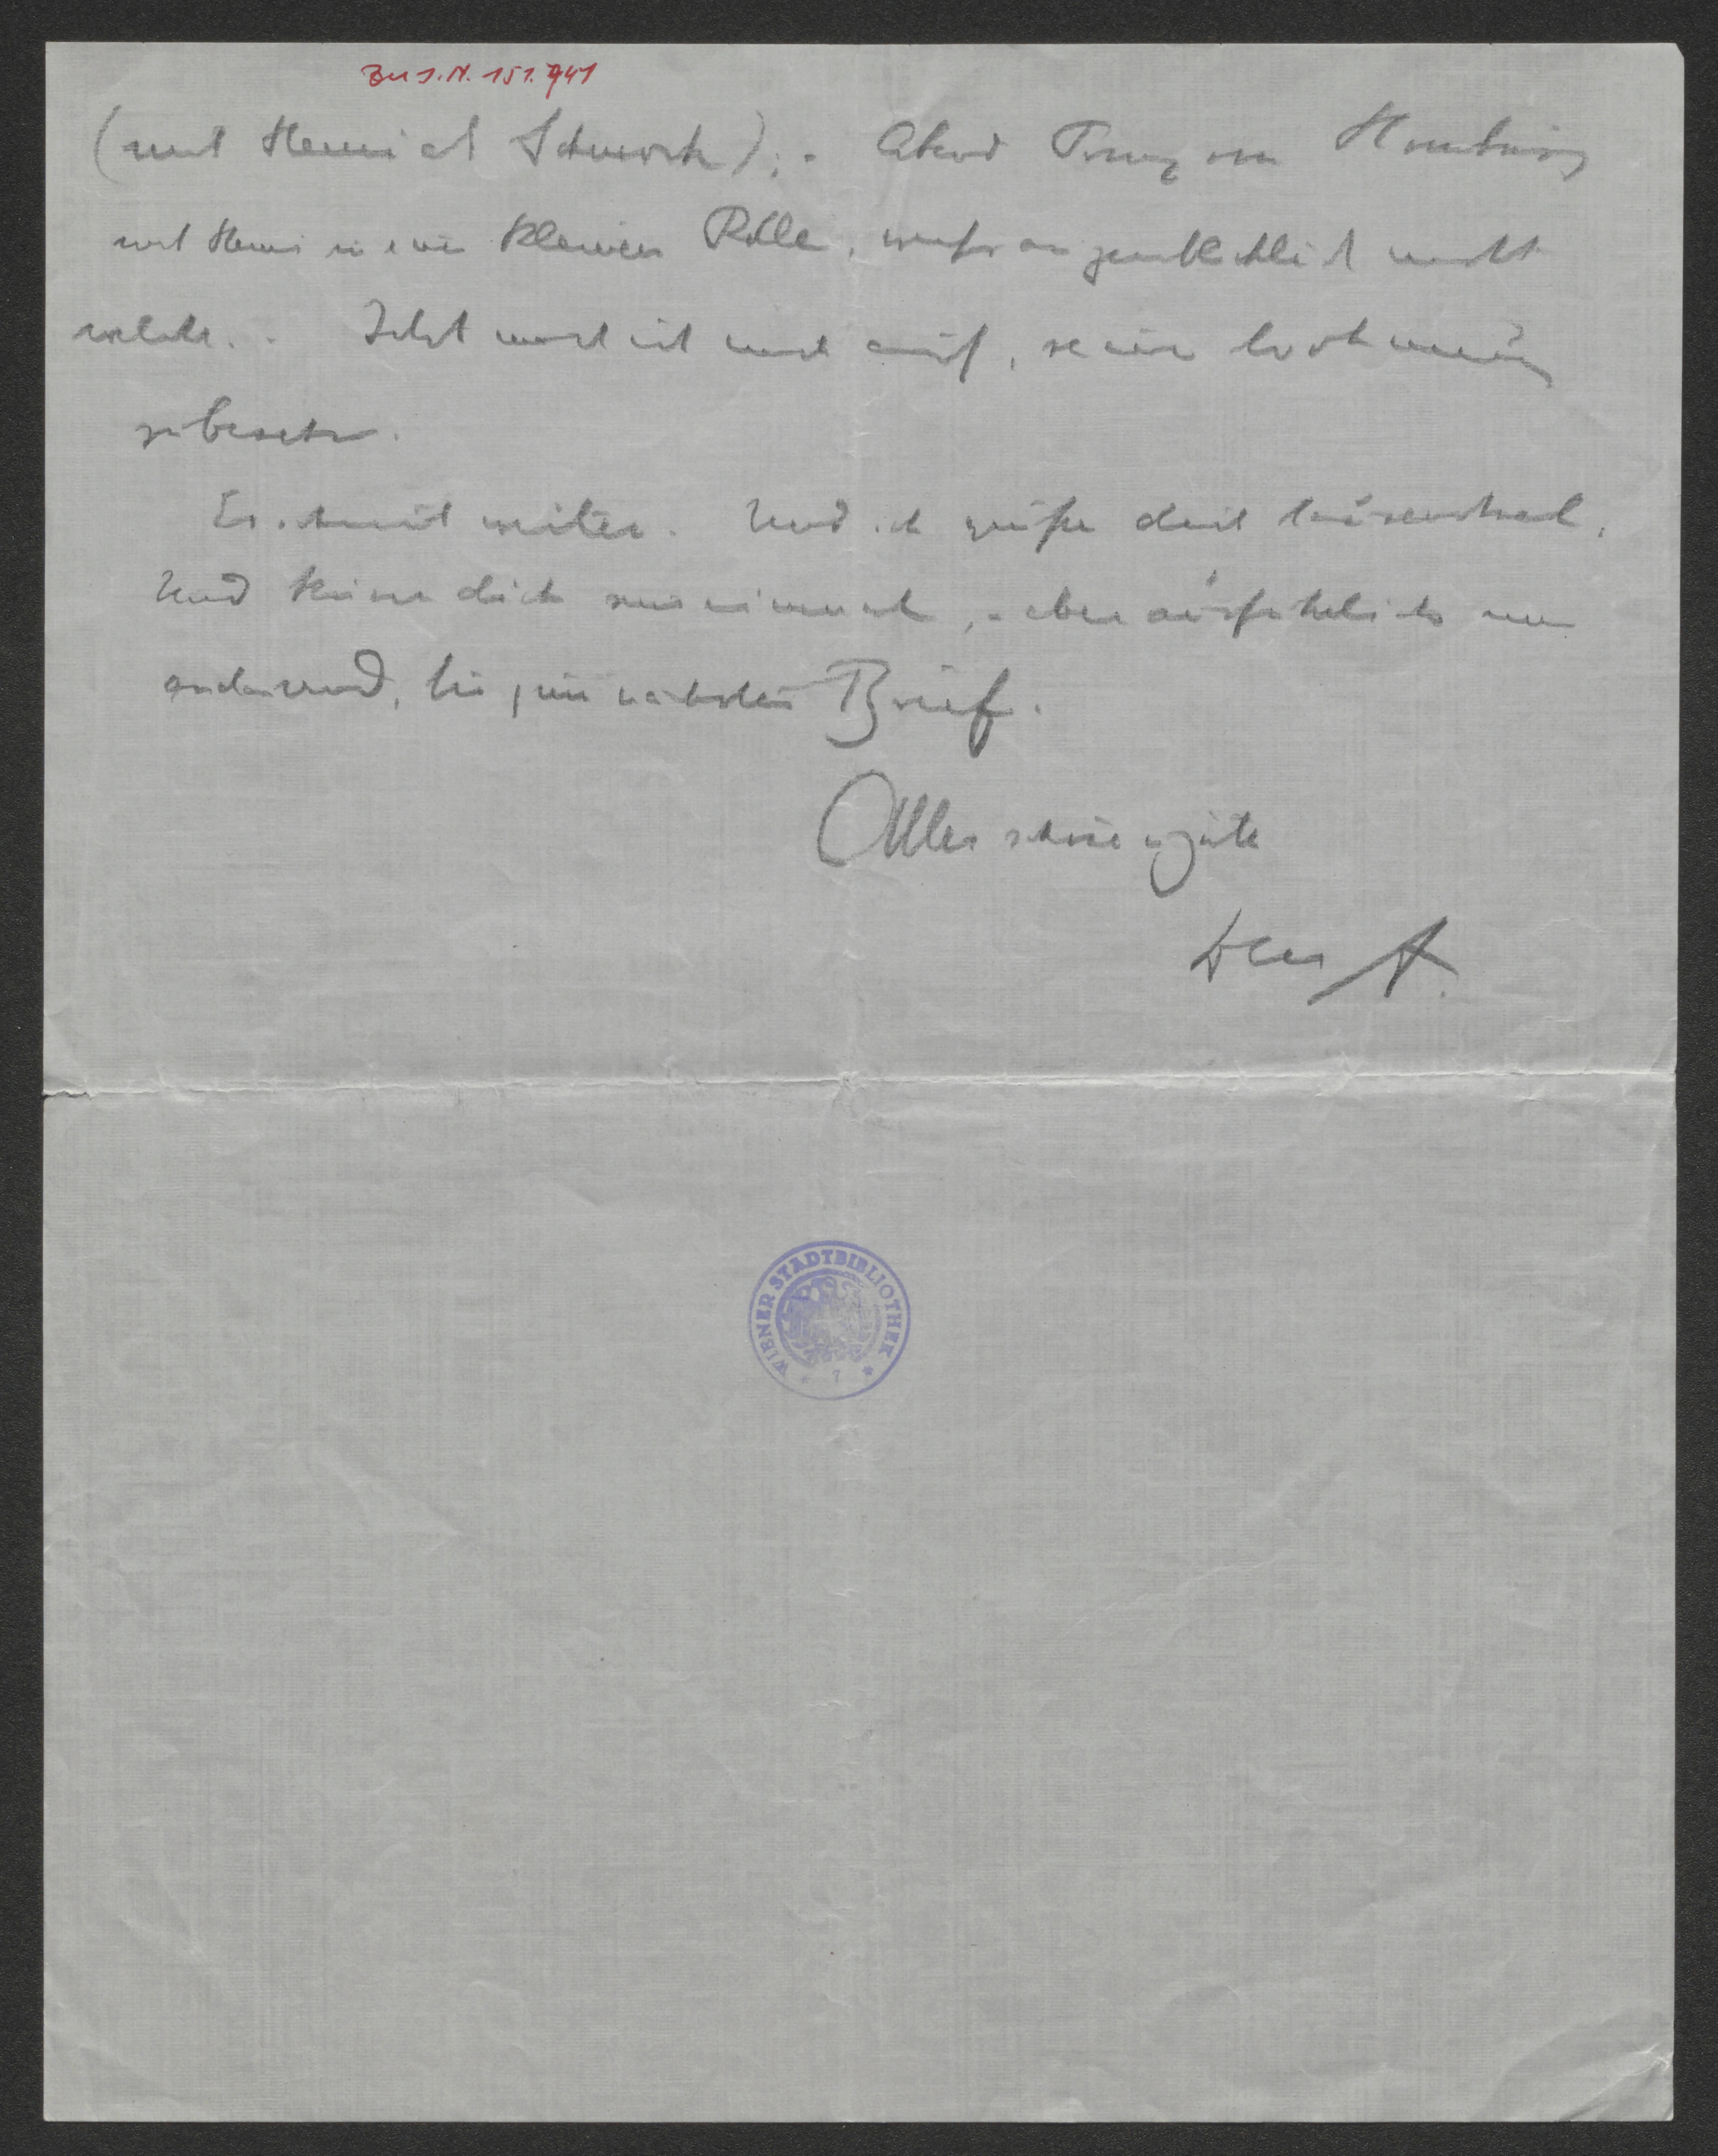 Zu I.N. 151.941
(mit Heinrich Schnitzler);- Abend Prinz von Homburg
mit Heini in einer kleinen Rolle, weiss augenblicklich nicht
welche.. Jetzt mach ich mich auf, seine Wohnung
zu besehn.
Es schneit weiter. Und ich grüße dich tausendmal.
Und küsse dich nur einmal,- aber ausführlich und
andauernd, bis zum nächsten Brief.
Alles schöne u gute
Dein A.
WIENER STADTBIBLIOTHEK
* 7 *